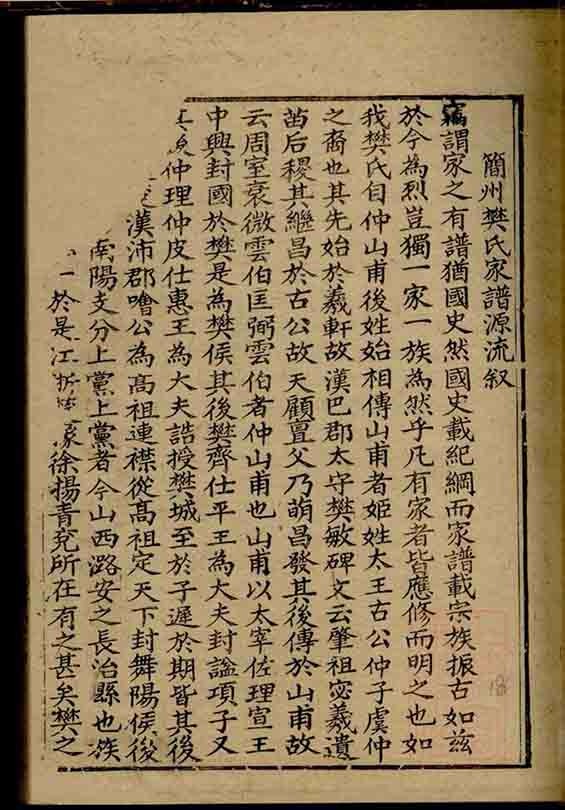 簡州樊氏家譜源流叙
竊謂家之有譜猶國史然國史載紀綱而家譜載宗族振古如茲
於今為烈豈獨一家一族為然乎凡有家者皆應修而明之也如
我樊氏自仲山甫後姓始相傳山甫者姬姓太王古公仲子虞仲
之裔也其先始於羲軒故漢巴郡太守樊敏碑文云肇祖宓羲遺
苗后稷其繼昌於古公故天顧亶父乃萌昌發其後傳於山甫故
云周室衰微雲伯匡弼雲伯者仲山甫也山甫以太宰佐理宣王
中興封國於樊是為樊侯其後樊齊仕平王為大夫封謚項子又
仲理仲皮仕惠王為大夫誥授樊城至於子遲於期皆其後
漢沛郡噲公為高祖連襟從高祖定天下封舞陽侯後
南陽支分上黨上黨者今山西潞安之長治縣也族
於是江 徐揚青兗所在有之甚矣樊之
18